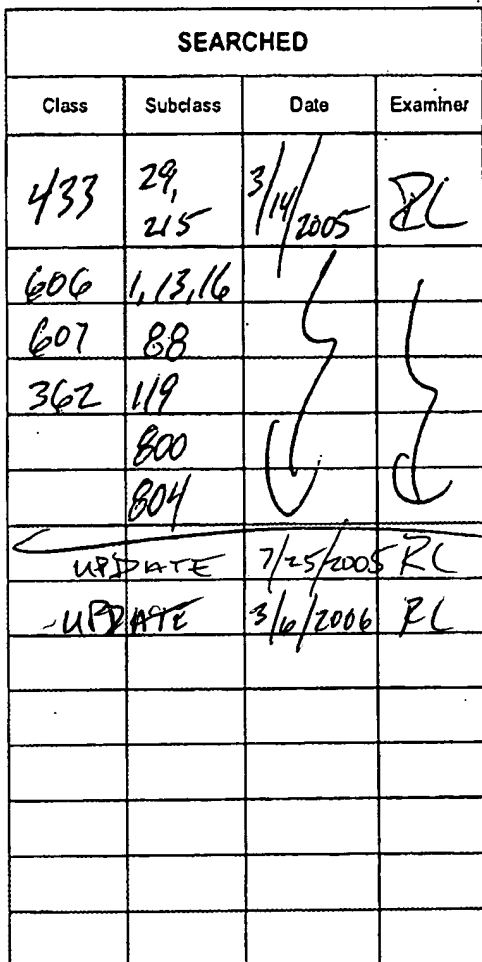 SEARCHED
Class Subclass Date Examiner
433 29, 215 3/14/2005 RL
606 1, 13, 16
607 88
362 119
800
804
UPDATE 7/25/2005 RL
UPDATE 3/6/2006 RL